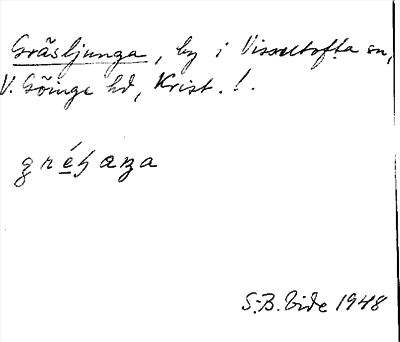 Gräsljunga, by i Visseltofta sn,
V. Göinge hd, Krist. !.
S.-B. Vide 1948